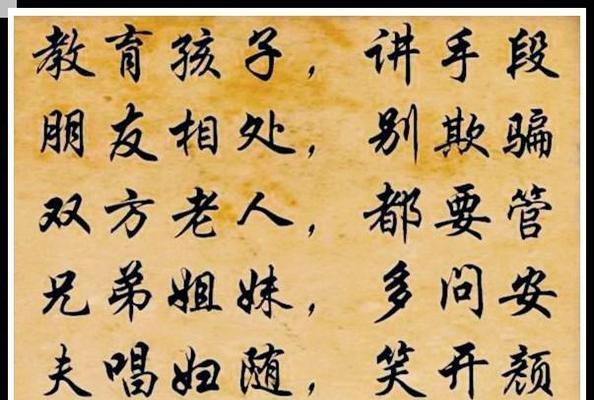 教育孩子，讲手段
朋友相处，别欺骗
双方老人，都要管
兄弟姐妹，多问安
夫唱妇随，笑开颜